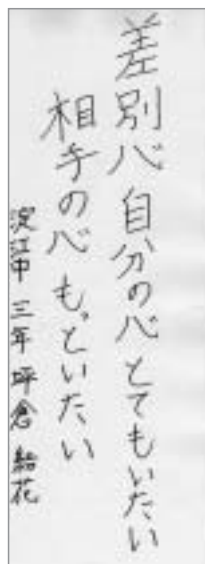 差別心 自分の心 とてもいたい
相手の心 もっといたい
淀江中 三年 坪倉 結花